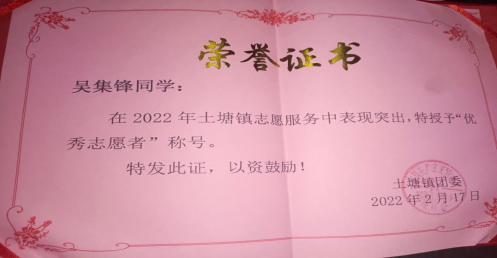 荣誉证书
吴集锋同学：
在2022年土塘镇志愿服务中表现突出，特授予“优
秀志愿者”称号。
特发此证，以资鼓励！
土塘镇团委
2022年2月17日